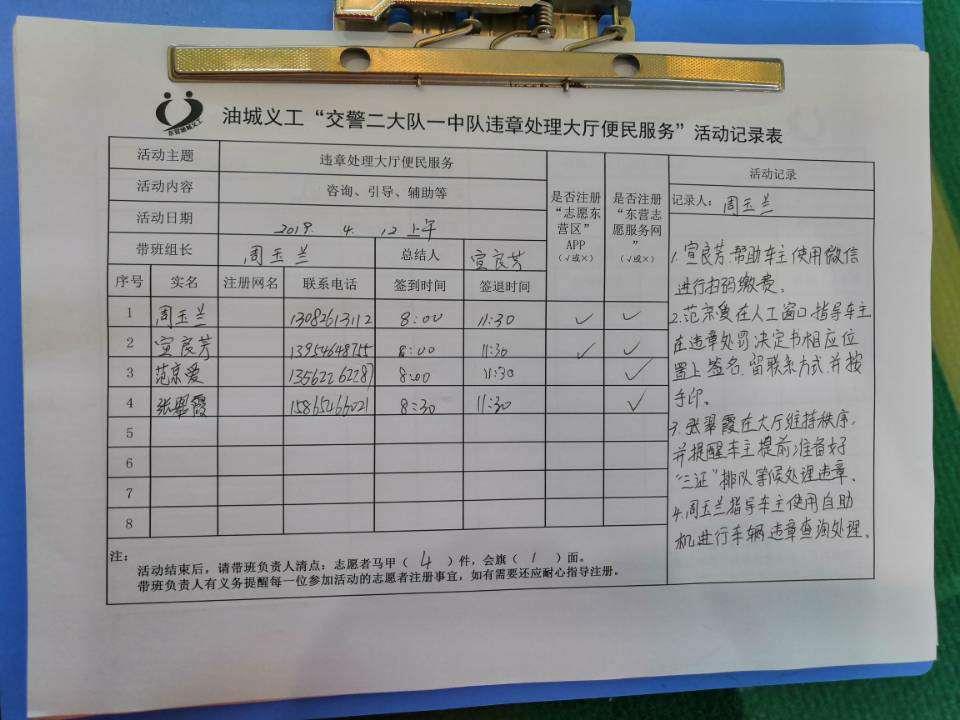 东营油城义工
油城义工“交警二大队一中队违章处理大厅便民服务”活动记录表
活动主题 违章处理大厅便民服务
活动内容 咨询、引导、辅助等
活动日期 2019. 4. 12 上午
带班组长 周玉兰 总结人 宣良芳
是否注册“志愿东营区”APP（√或×）
是否注册“东营志愿服务网”（√或×）
序号 实名 注册网名 联系电话 签到时间 签退时间
1 周玉兰 13082613112 8:00 11:30 √ √
2 宣良芳 13954648755 8:00 11:30 √ √
3 范京爱 13562262287 8:00 11:30 √
4 张翠霞 15865466021 8:30 11:30 √
5
6
7
8
注：
活动结束后，请带班负责人清点：志愿者马甲（4）件，会旗（1）面。
带班负责人有义务提醒每一位参加活动的志愿者注册事宜，如有需要还应耐心指导注册。
活动记录
记录人：周玉兰
1.宣良芳.帮助车主使用微信
进行扫码缴费。
2.范京爱在人工窗口指导车主
在违章处罚决定书相应位
置上签名.留联系方式.并按
手印。
3.张翠霞在大厅维持秩序，
并提醒车主提前准备好
“三证”排队等候处理违章、
4.周玉兰指导车主使用自助
机进行车辆违章查询处理。